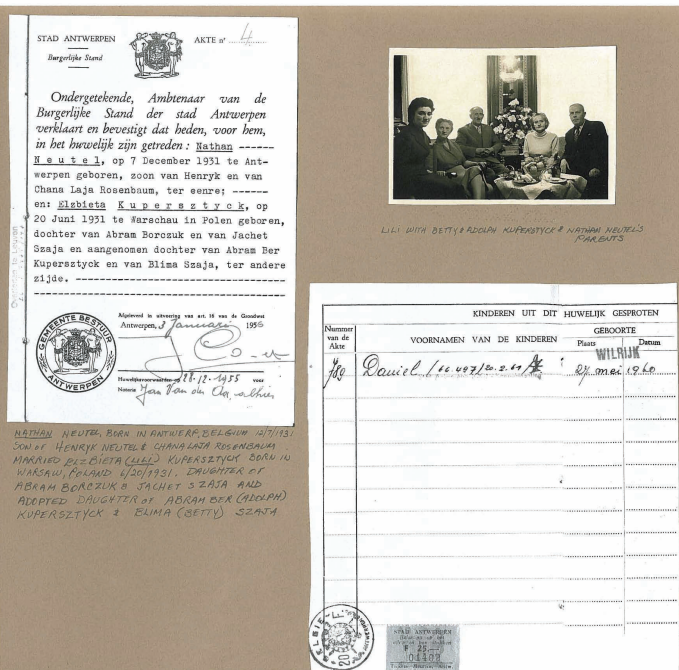 STAD ANTWERPEN
Burgerlijke Stand
AKTE nr 4
Ondergetekende, Ambtenaar van de
Burgerlijke Stand der stad Antwerpen
verklaart en bevestigt dat heden, voor hem,
in het huwelijk zijn getreden : Nathan ------
Neutel, op 7 December 1931 te Ant-
werpen geboren, zoon van Henryk en van
Chana Laja Rosenbaum, ter eenre; ------
en: Elzbieta Kupersztyck, op
20 Juni 1931 te Warschau in Polen geboren,
dochter van Abram Borczuk en van Jachet
Szaja en aangenomen dochter van Abram Ber
Kupersztyck en van Blima Szaja, ter andere
zijde.
Afgeleverd in uitvoering van art. 16 van de Grondwet
Antwerpen, 3 Januari 1956
GEMEENTE BESTUUR
ANTWERPEN
Huwelijksvoorwaarden op 28-12-1955 voor
Notaris Jan Van der
NATHAN NEUTEL, BORN IN ANTWERP, BELGIUM 12/7/1931
SON OF HENRYK NEUTEL & CHANA LAJA ROSENBAUM
MARRIED ELZBIETA (LILI) KUPERSZTYCK BORN IN
WARSAW, POLAND 6/20/1931. DAUGHTER OF
ABRAM BORCZUK & JACHET SZAJA AND
ADOPTED DAUGHTER OF ABRAM BER (ADOLPH)
KUPERSZTYCK & BLIMA (BETTY) SZAJA
LILI WITH BETTY & ADOLPH KUPERSTYCK & NATHAN NEUTEL'S
PARENTS
KINDEREN UIT DIT HUWELIJK GESPROTEN
Nummer van de Akte
VOORNAMEN VAN DE KINDEREN
GEBOORTE
Plaats
Datum
WILRIJK
789 Daniel 27 mei 1960
STAD ANTWERPEN
F 25.—